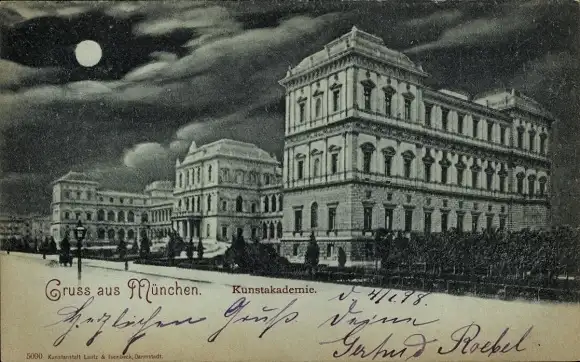 Gruss aus München.
Kunstakademie.
d. 4/1. 98.
Herzlichen Gruß Deine
Gertrud Roebel.
5090 Kunstanstalt Lautz & Isenbeck, Darmstadt.